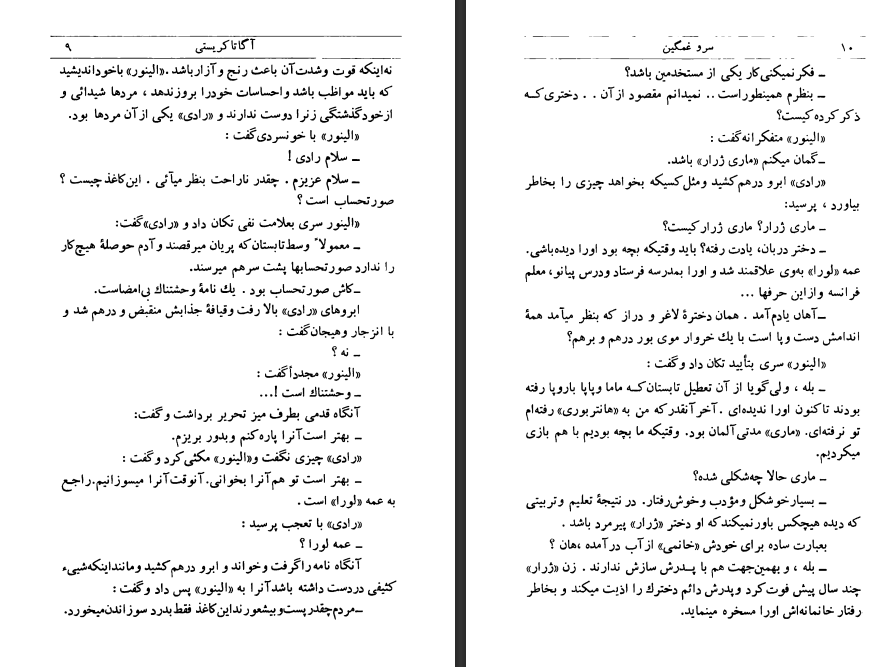 ۹ آگاتا کریستی
نه‌اینکه قوت وشدت‌آن باعث رنج و آزار باشد. «الینور» باخود اندیشید
که باید مواظب باشد واحساسات خودرا بروز ندهد ، مردها شیدائی و
از خود گذشتگی زنرا دوست ندارند و «رادی» یکی از آن مردها بود.
«الینور» با خونسردی‌گفت :
ـ سلام رادی !
ـ سلام عزیزم . چقدر ناراحت بنظر میآئی . این‌کاغذ چیست ؟
صورتحساب است ؟
«الینور سری بعلامت نفی تکان داد و «رادی»گفت:
ـ معمولا ً وسط تابستان‌که پریان میرقصند و آدم حوصلهٔ هیچ‌کار
را ندارد صورتحسابها پشت سرهم میرسند.
ـ کاش صورتحساب بود . یك نامهٔ وحشتناك بی‌امضاست.
ابروهای «رادی» بالا رفت وقیافهٔ جذابش منقبض و درهم شد و
با انزجار وهیجان‌گفت :
ـ نه ؟
«الینور» مجدداًگفت :
ـ وحشتناك است !...
آنگاه قدمی بطرف میز تحریر برداشت و گفت:
ـ بهتر است‌آنرا پاره‌کنم وبدور بریزم.
«رادی» چیزی نگفت و«الینور» مکثی‌کرد وگفت :
ـ بهتر است تو هم‌آنرا بخوانی. آنوقت‌آنرا میسوزانیم. راجع
به عمه «لورا» است .
«رادی» با تعجب پرسید :
ـ عمه لورا ؟
آنگاه نامه راگرفت وخواند و ابرو درهم‌کشید ومانند اینکه شیئی‌ء
کثیفی دردست داشته باشد آنرا به «الینور» پس داد وگفت :
ـ مردم چقدر پست و بیشعورند این‌کاغذ فقط بدرد سوزاندن میخورد.
سرو غمگین ۱۰
ـ فکر نمیکنی‌کار یکی از مستخدمین باشد؟
ـ بنظرم همینطور است . . نمیدانم مقصود از آن . . دختری‌که
ذکر کرده کیست؟
«الینور» متفکرانه‌گفت :
ـ گمان میکنم «ماری ژرار» باشد.
«رادی» ابرو درهم‌کشید ومثل‌کسیکه بخواهد چیزی را بخاطر
بیاورد ، پرسید:
ـ ماری ژرار؟ ماری ژرار کیست؟
ـ دختر دربان، یادت رفته؟ باید وقتیکه بچه بود اورا دیده‌باشی.
عمه «لورا» به‌وی علاقمند شد و اورا بمدرسه فرستاد ودرس پیانو، معلم
فرانسه و ازاین حرفها ...
ـ آهان یادم‌آمد . همان دخترهٔ لاغر و دراز که بنظر میآمد همهٔ
اندامش دست وپا است با یك خروار موی بور درهم و برهم؟
«الینور» سری بتأیید تکان داد وگفت :
ـ بله ، ولی‌گویا از آن تعطیل تابستان‌که ماما وپاپا باروپا رفته
بودند تاکنون اورا ندیده‌ای . آخر آنقدرکه من به «هانتربوری» رفته‌ام
تو نرفته‌ای. «ماری» مدتی‌آلمان بود. وقتیکه ما بچه بودیم با هم بازی
میکردیم.
ـ ماری حالا چه‌شکلی شده؟
ـ بسیار خوشکل ومؤدب وخوش‌رفتار. در نتیجهٔ تعلیم وتربیتی
که دیده هیچکس باور نمیکندکه او دختر «ژرار» پیرمرد باشد .
بعبارت ساده برای خودش «خانمی» از آب درآمده ،هان ؟
ـ بله ، و بهمین‌جهت هم با پدرش سازش ندارند . زن «ژرار»
چند سال پیش فوت‌کرد وپدرش دائم دخترك را اذیت میکند و بخاطر
رفتار خانمانه‌اش اورا مسخره مینماید.